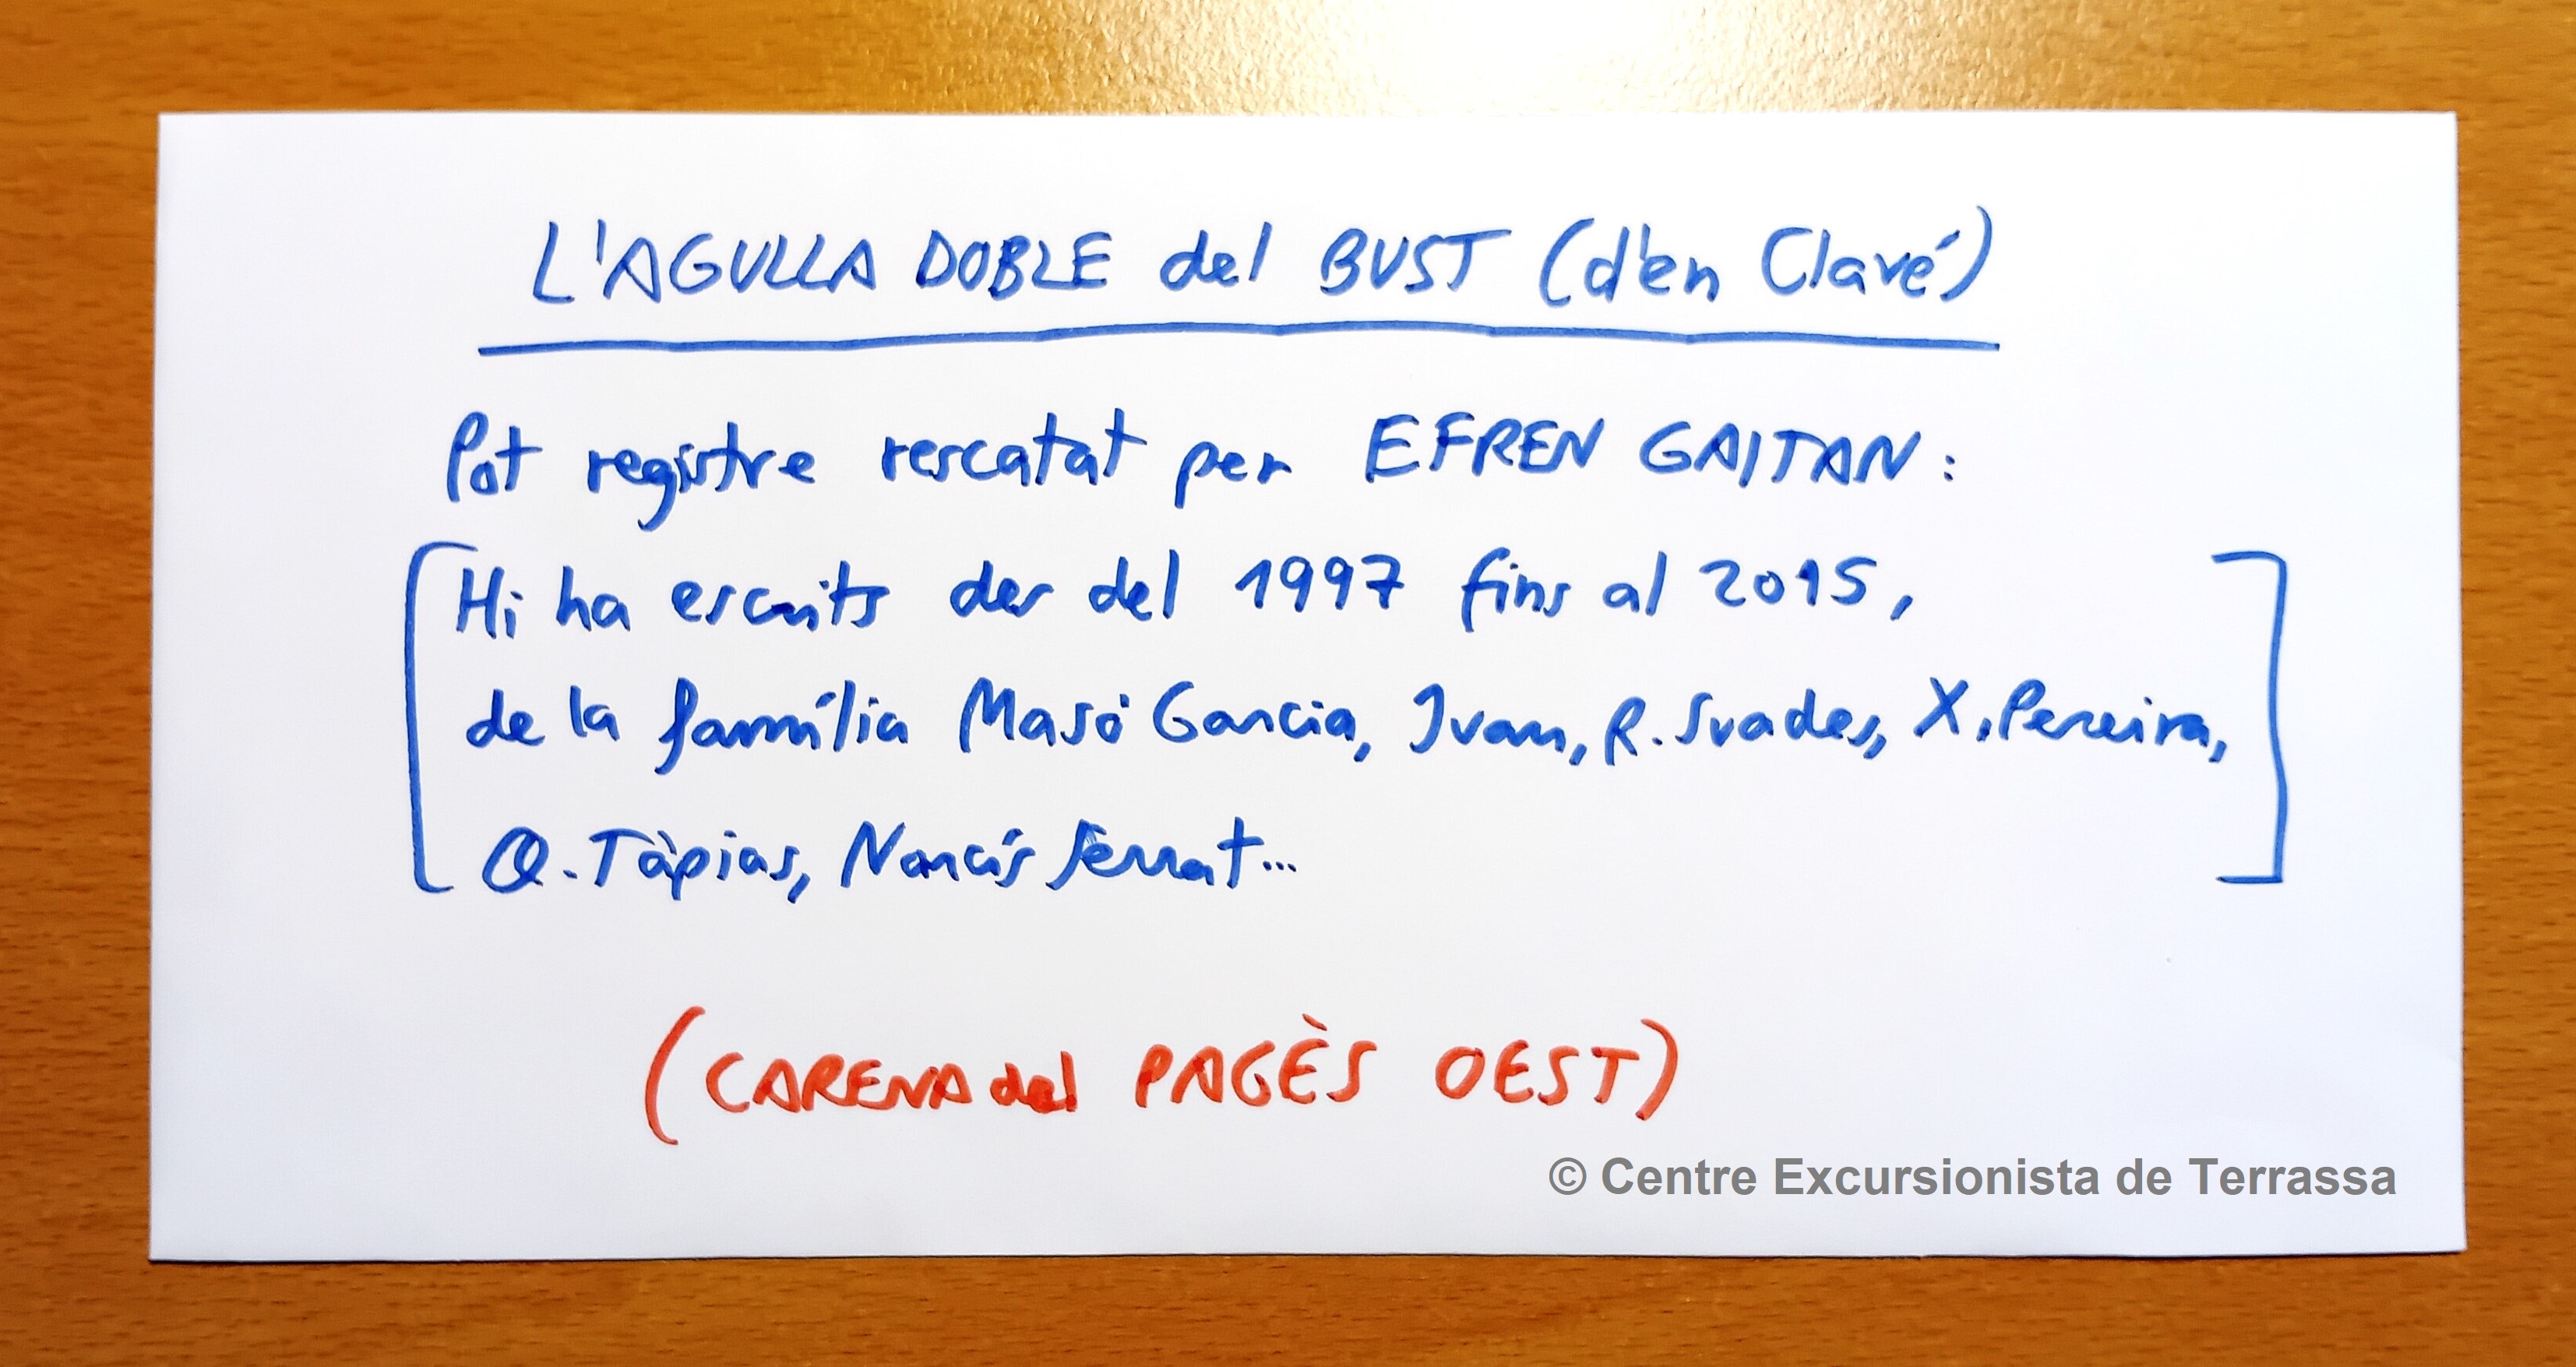 L'AGULLA DOBLE del BUST (d'en Clavé)
Pot registre rescatat per EFREN GAITAN:
[Hi ha escrits des del 1997 fins al 2015,
de la família Masó Garcia, Ivan, R. Suades, X. Pereira,
Q. Tàpias, Narcís Serrat...]
(CARENA del PAGÈS OEST)
© Centre Excursionista de Terrassa